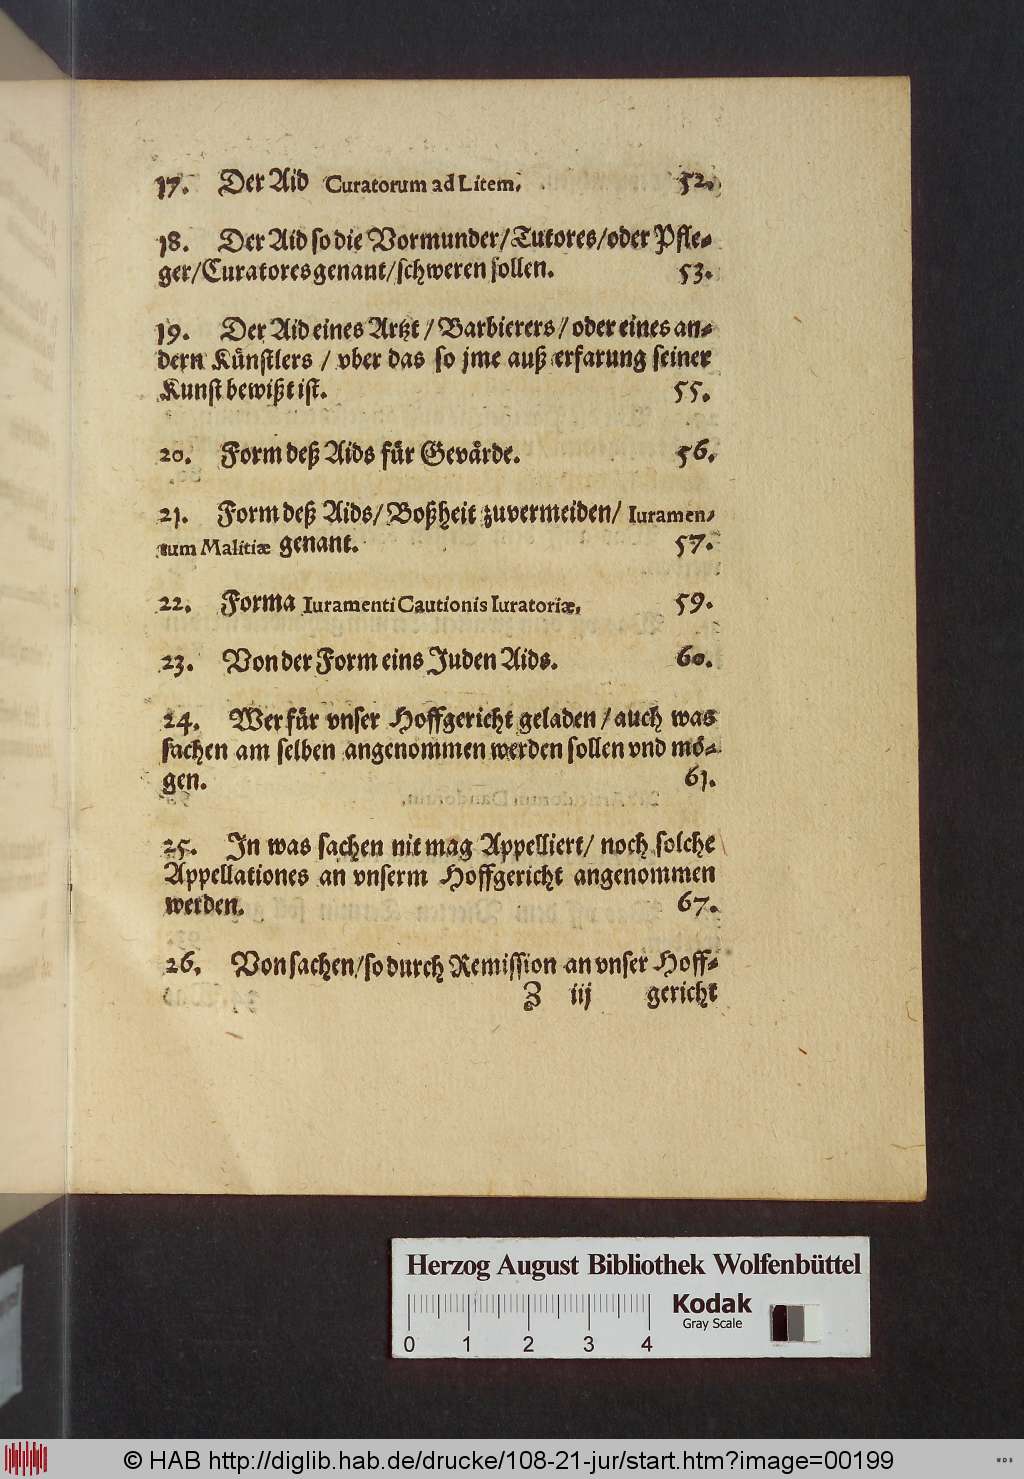 17. Der Aid Curatorum ad Litem. 52.
18. Der Aid so die Vormunder/Tutores/oder Pfle-
ger/Curatores genant/schweren sollen. 53.
19. Der Aid eines Artzt / Barbierers / oder eines an-
dern Künstlers / vber das so jme auß erfarung seiner
Kunst bewißt ist. 55.
20. Form deß Aids für Gevärde. 56.
21. Form deß Aids/ Boßheit zuvermeiden/ Iuramen-
tum Malitiæ genant. 57.
22. Forma Iuramenti Cautionis Iuratoriæ. 59.
23. Von der Form eins Juden Aids. 60.
24. Wer für vnser Hoffgericht geladen / auch was
sachen am selben angenommen werden sollen vnd mö-
gen. 61.
25. In was sachen nit mag Appelliert/ noch solche
Appellationes an vnserm Hoffgericht angenommen
werden. 67.
26. Von sachen/so durch Remission an vnser Hoff-
Z iij gericht
Herzog August Bibliothek Wolfenbüttel
Kodak
Gray Scale
0 1 2 3 4
© HAB http://diglib.hab.de/drucke/108-21-jur/start.htm?image=00199